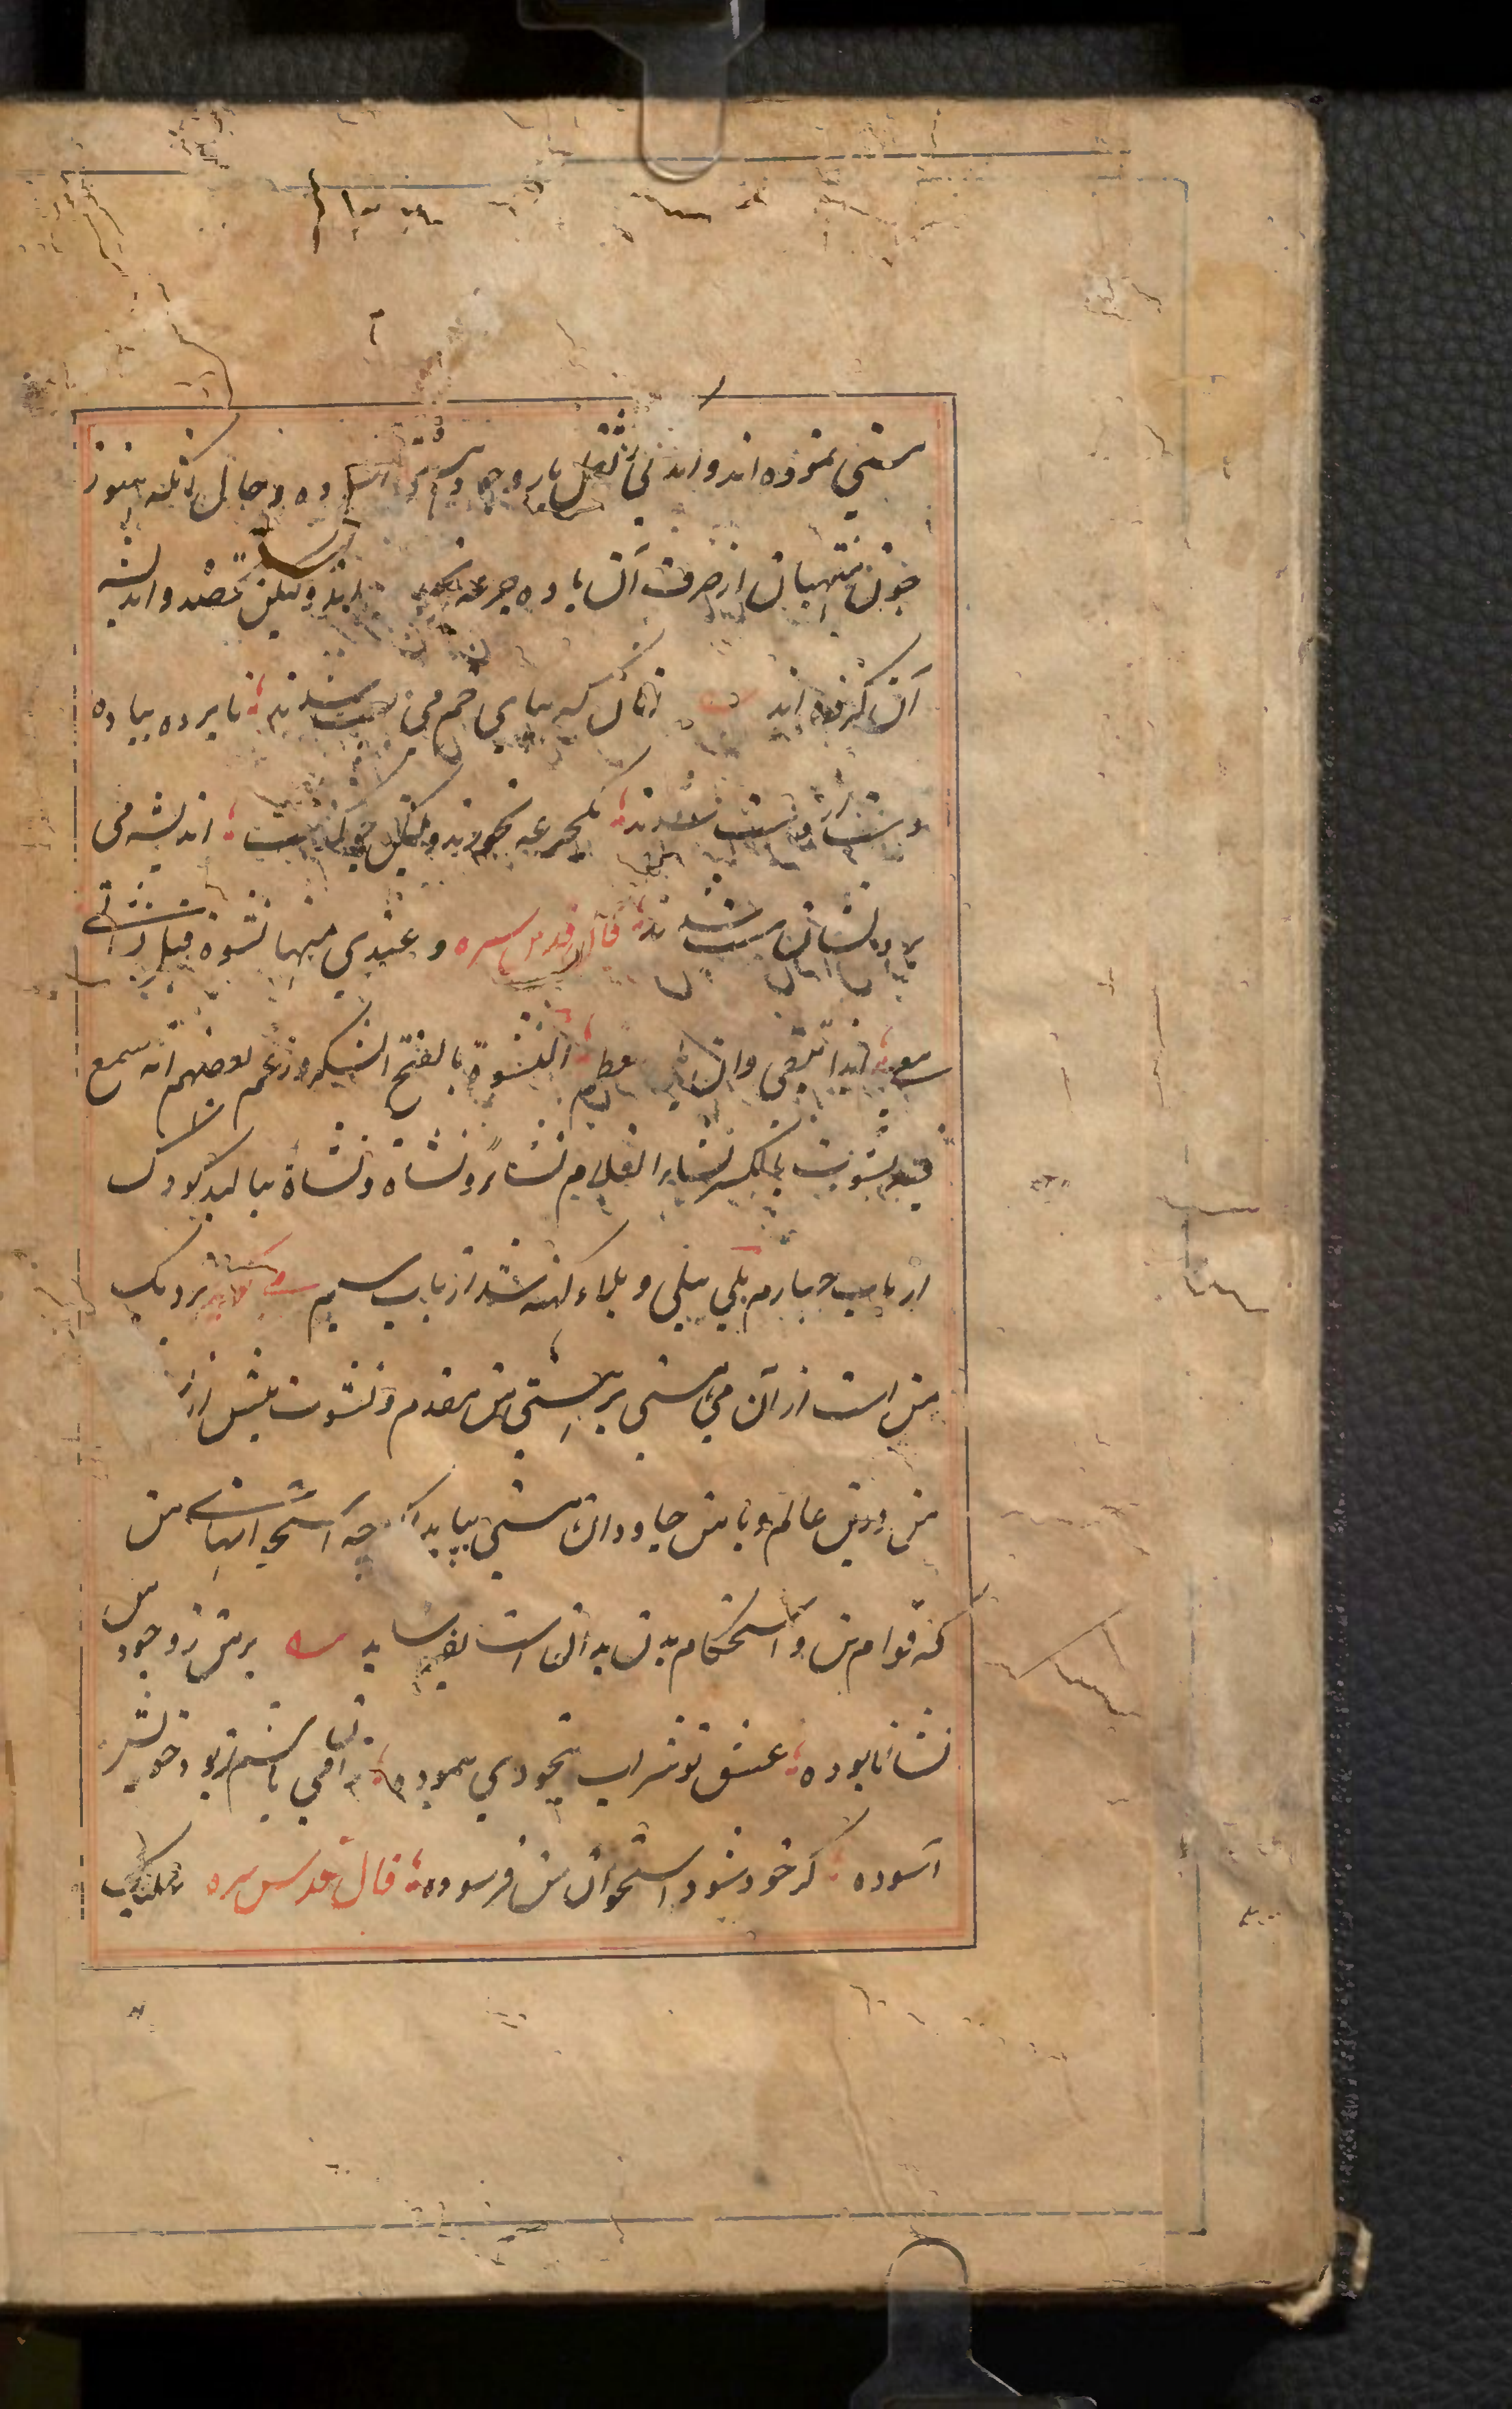 مستی نموده اند و اندکی از ثقل بار وجود و حال آنکه هنوز
چون منتهیان از صرف آن باده جرعه اند ولیکن بقصد و اندیشه
آن کرده اند آنان که بپای خم می پست شدند نابرده بباده
دست سرمست شدند یکجرعه نخورند ولیکن اندیشه می
بر دلشان مست شدند قال قدس سره و عندی منها نشوة قبل نشأتی
معی ابدا تبقی وان بلی العظم النشوة بالفتح السکر وزعم بعضهم انه سمع
فیه نشوت بالکسر نشاء الغلام نشاءً و نشأة و نشاة ببالید کودک
از باب چهارم بلی یبلی و بلاء کهنه شد از باب سیم میکوید نزدیک
من است از آن می مستی بر هستی من مقدم و نشوت پیش از
من درین عالم و با من جاودان مستی بپاید اگر چه استخوانهای من
که قوام من و استحکام بدن بدان است بفرساید بر من ز وجود من
نشان نابوده عشق تو شراب بیخودی پیموده می باشم ز بود خویش
آسوده گر خود شود استخوان من فرسوده قال قدس سره علیک